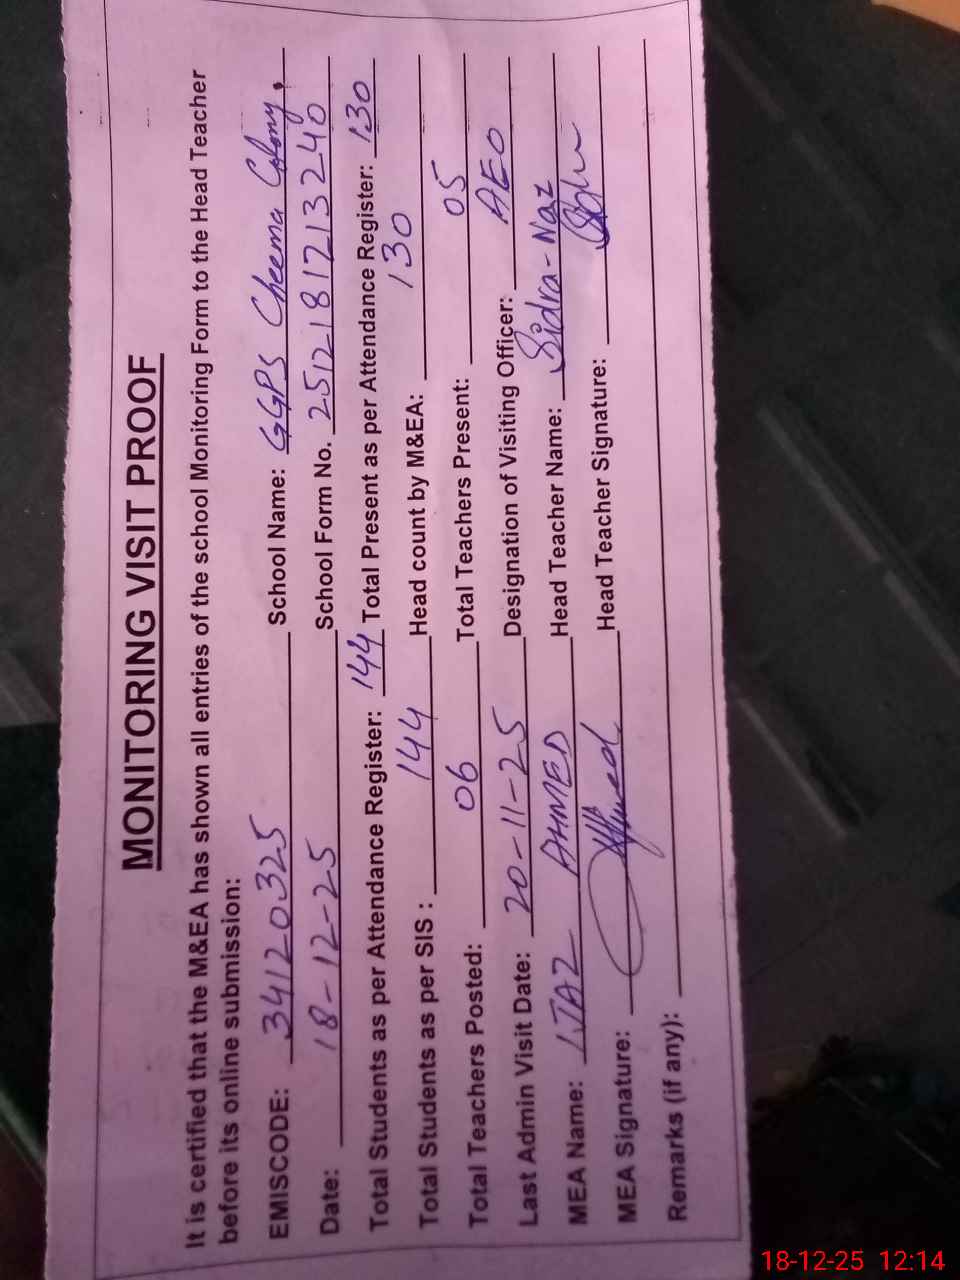 MONITORING VISIT PROOF
It is certified that the M&EA has shown all entries of the school Monitoring Form to the Head Teacher
before its online submission:
EMISCODE: 34120325 School Name: GGPS Cheema Colony.
Date: 18-12-25 School Form No. 2512181213240
Total Students as per Attendance Register: 144 Total Present as per Attendance Register: 130
Total Students as per SIS : 144 Head count by M&EA: 130
Total Teachers Posted: 06 Total Teachers Present: 05
Last Admin Visit Date: 20-11-25 Designation of Visiting Officer: AEO
MEA Name: IJAZ AHMED Head Teacher Name: Sidra-Naz
MEA Signature: Ahmed Head Teacher Signature:
Remarks (if any):
18-12-25 12:14